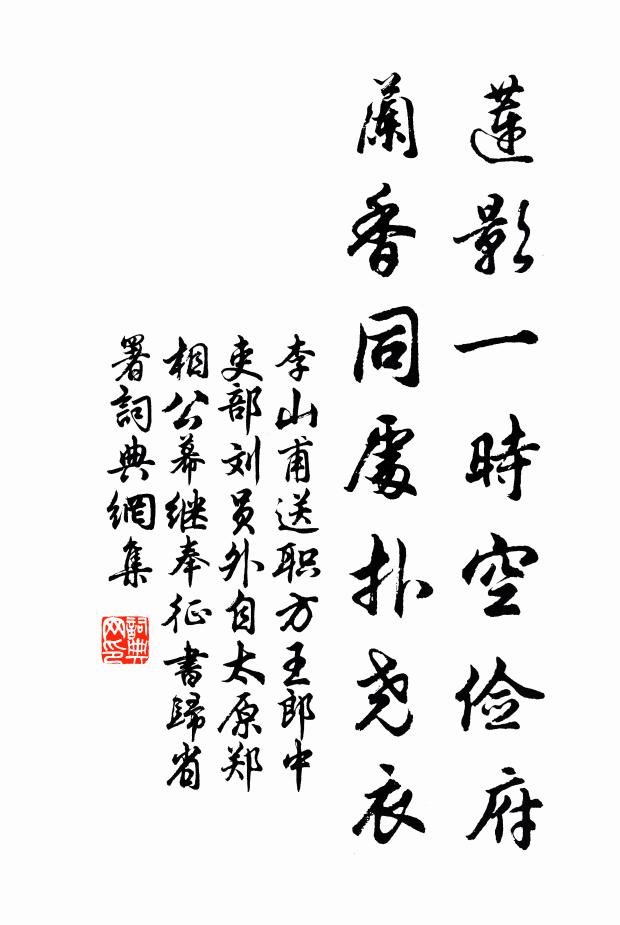 蓮影一時空俭府
蘭香同處扑尧衣
李山甫送职方王郎中
吏部刘员外自太原郑
相公幕继奉征書歸省
署詞典網集
詞典
网印